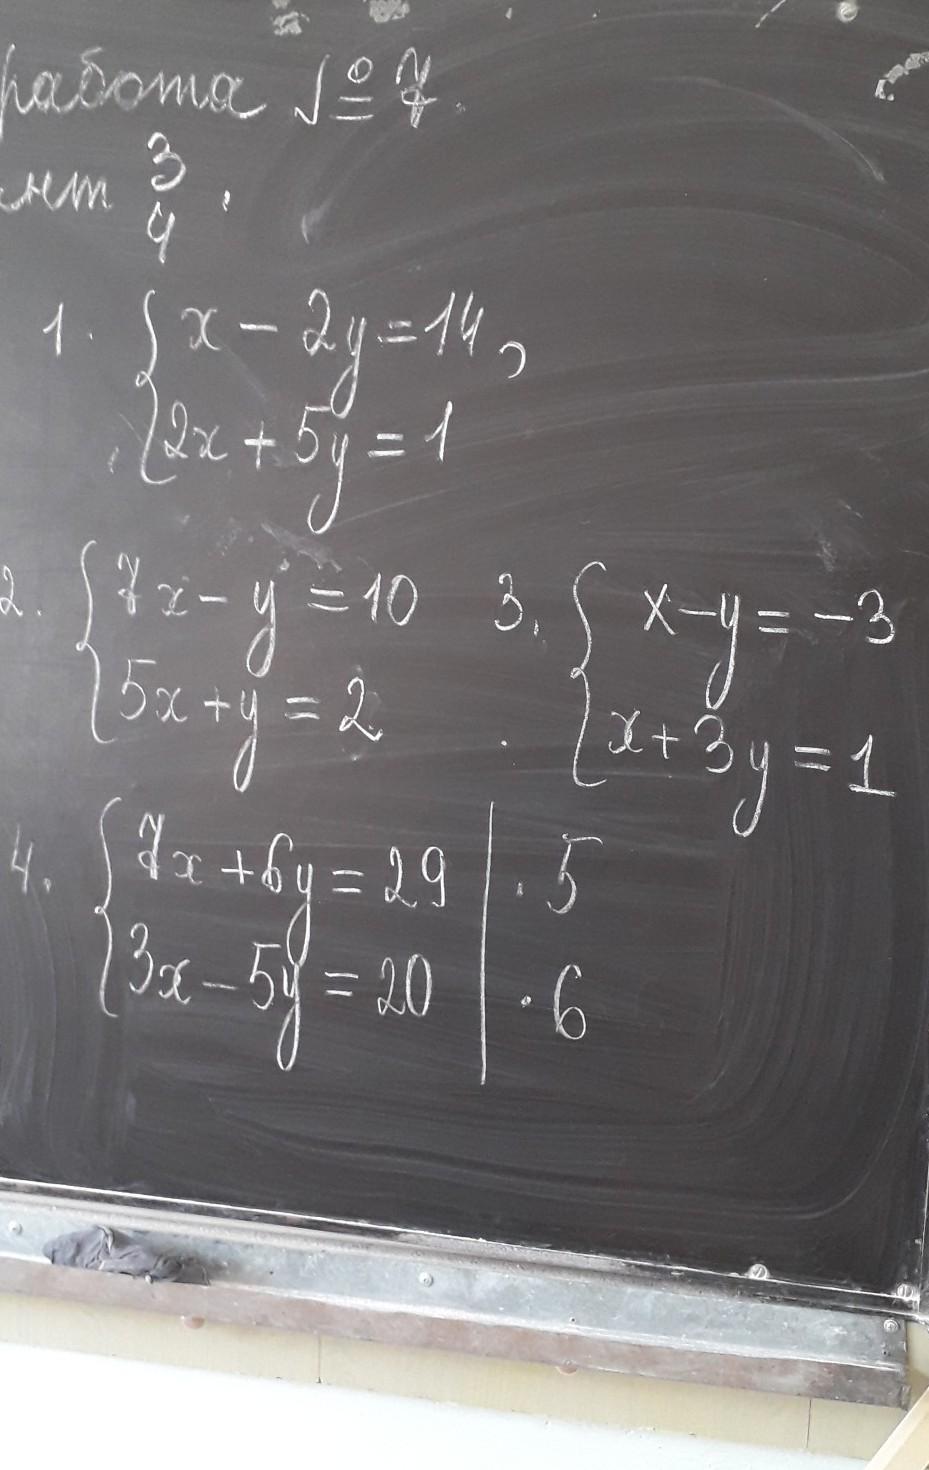 работа № 7.
3
4
1. { x - 2y = 14,
2x + 5y = 1
2. { 7x - y = 10
5x + y = 2
3. { x - y = -3
x + 3y = 1
4. { 7x + 6y = 29 | · 5
3x - 5y = 20 | · 6